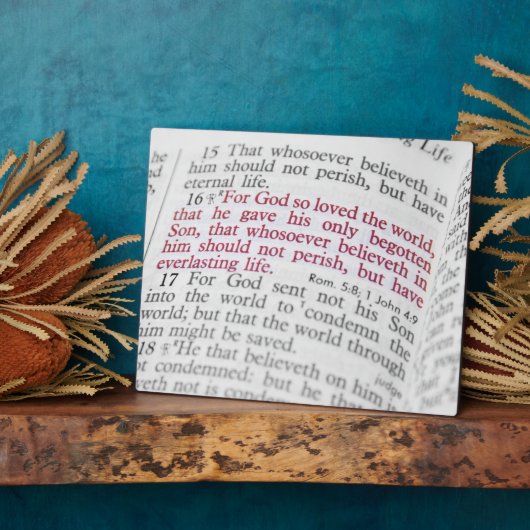 ng Life
he
15 That whosoever believeth in
him should not perish, but have
eternal life.
16 For God so loved the world,
that he gave his only begotten
Son, that whosoever believeth in
him should not perish, but have
everlasting life. Rom. 5:8; 1 John 4:9
17 For God sent not his Son
into the world to condemn the
world; but that the world through
him might be saved.
18 He that believeth on him is
not condemned: but he that
judge
eveth not is condem